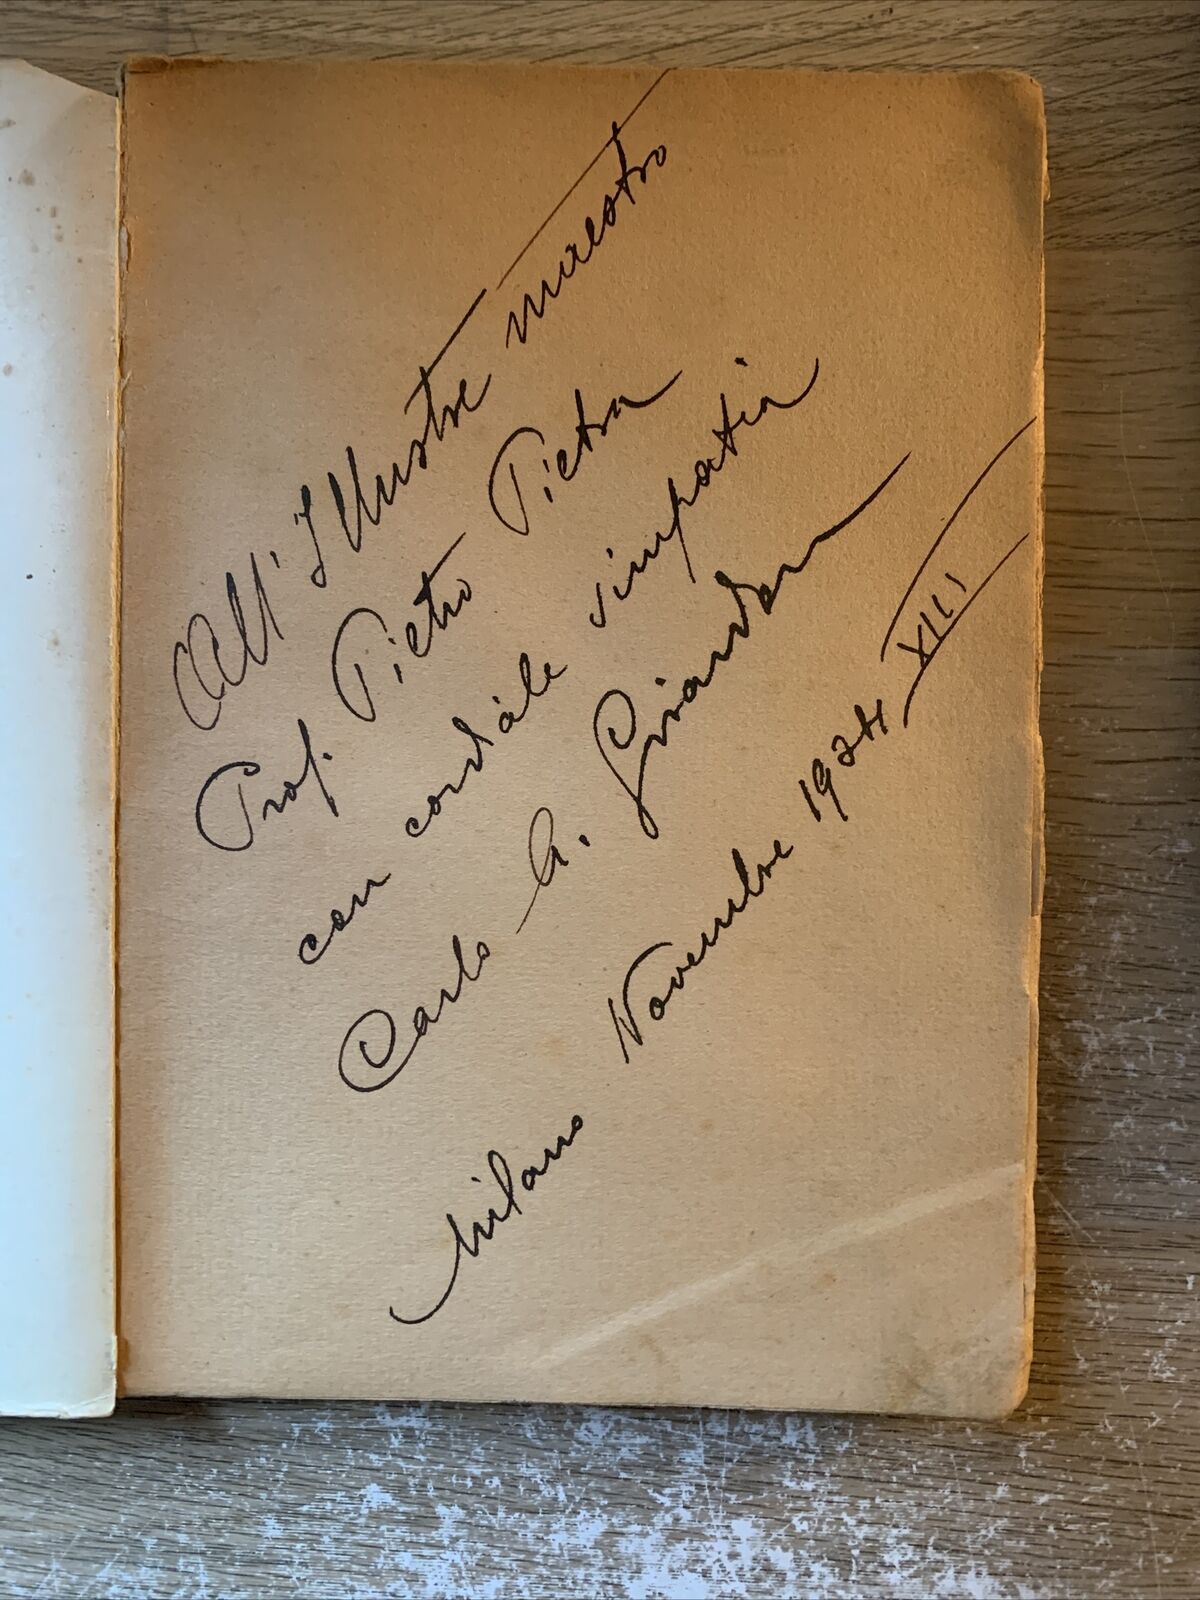 All'Illustre maestro
Prof. Pietro Pietra
con cordiale simpatia
Carlo A.
Milano Novembre 1934 XIII